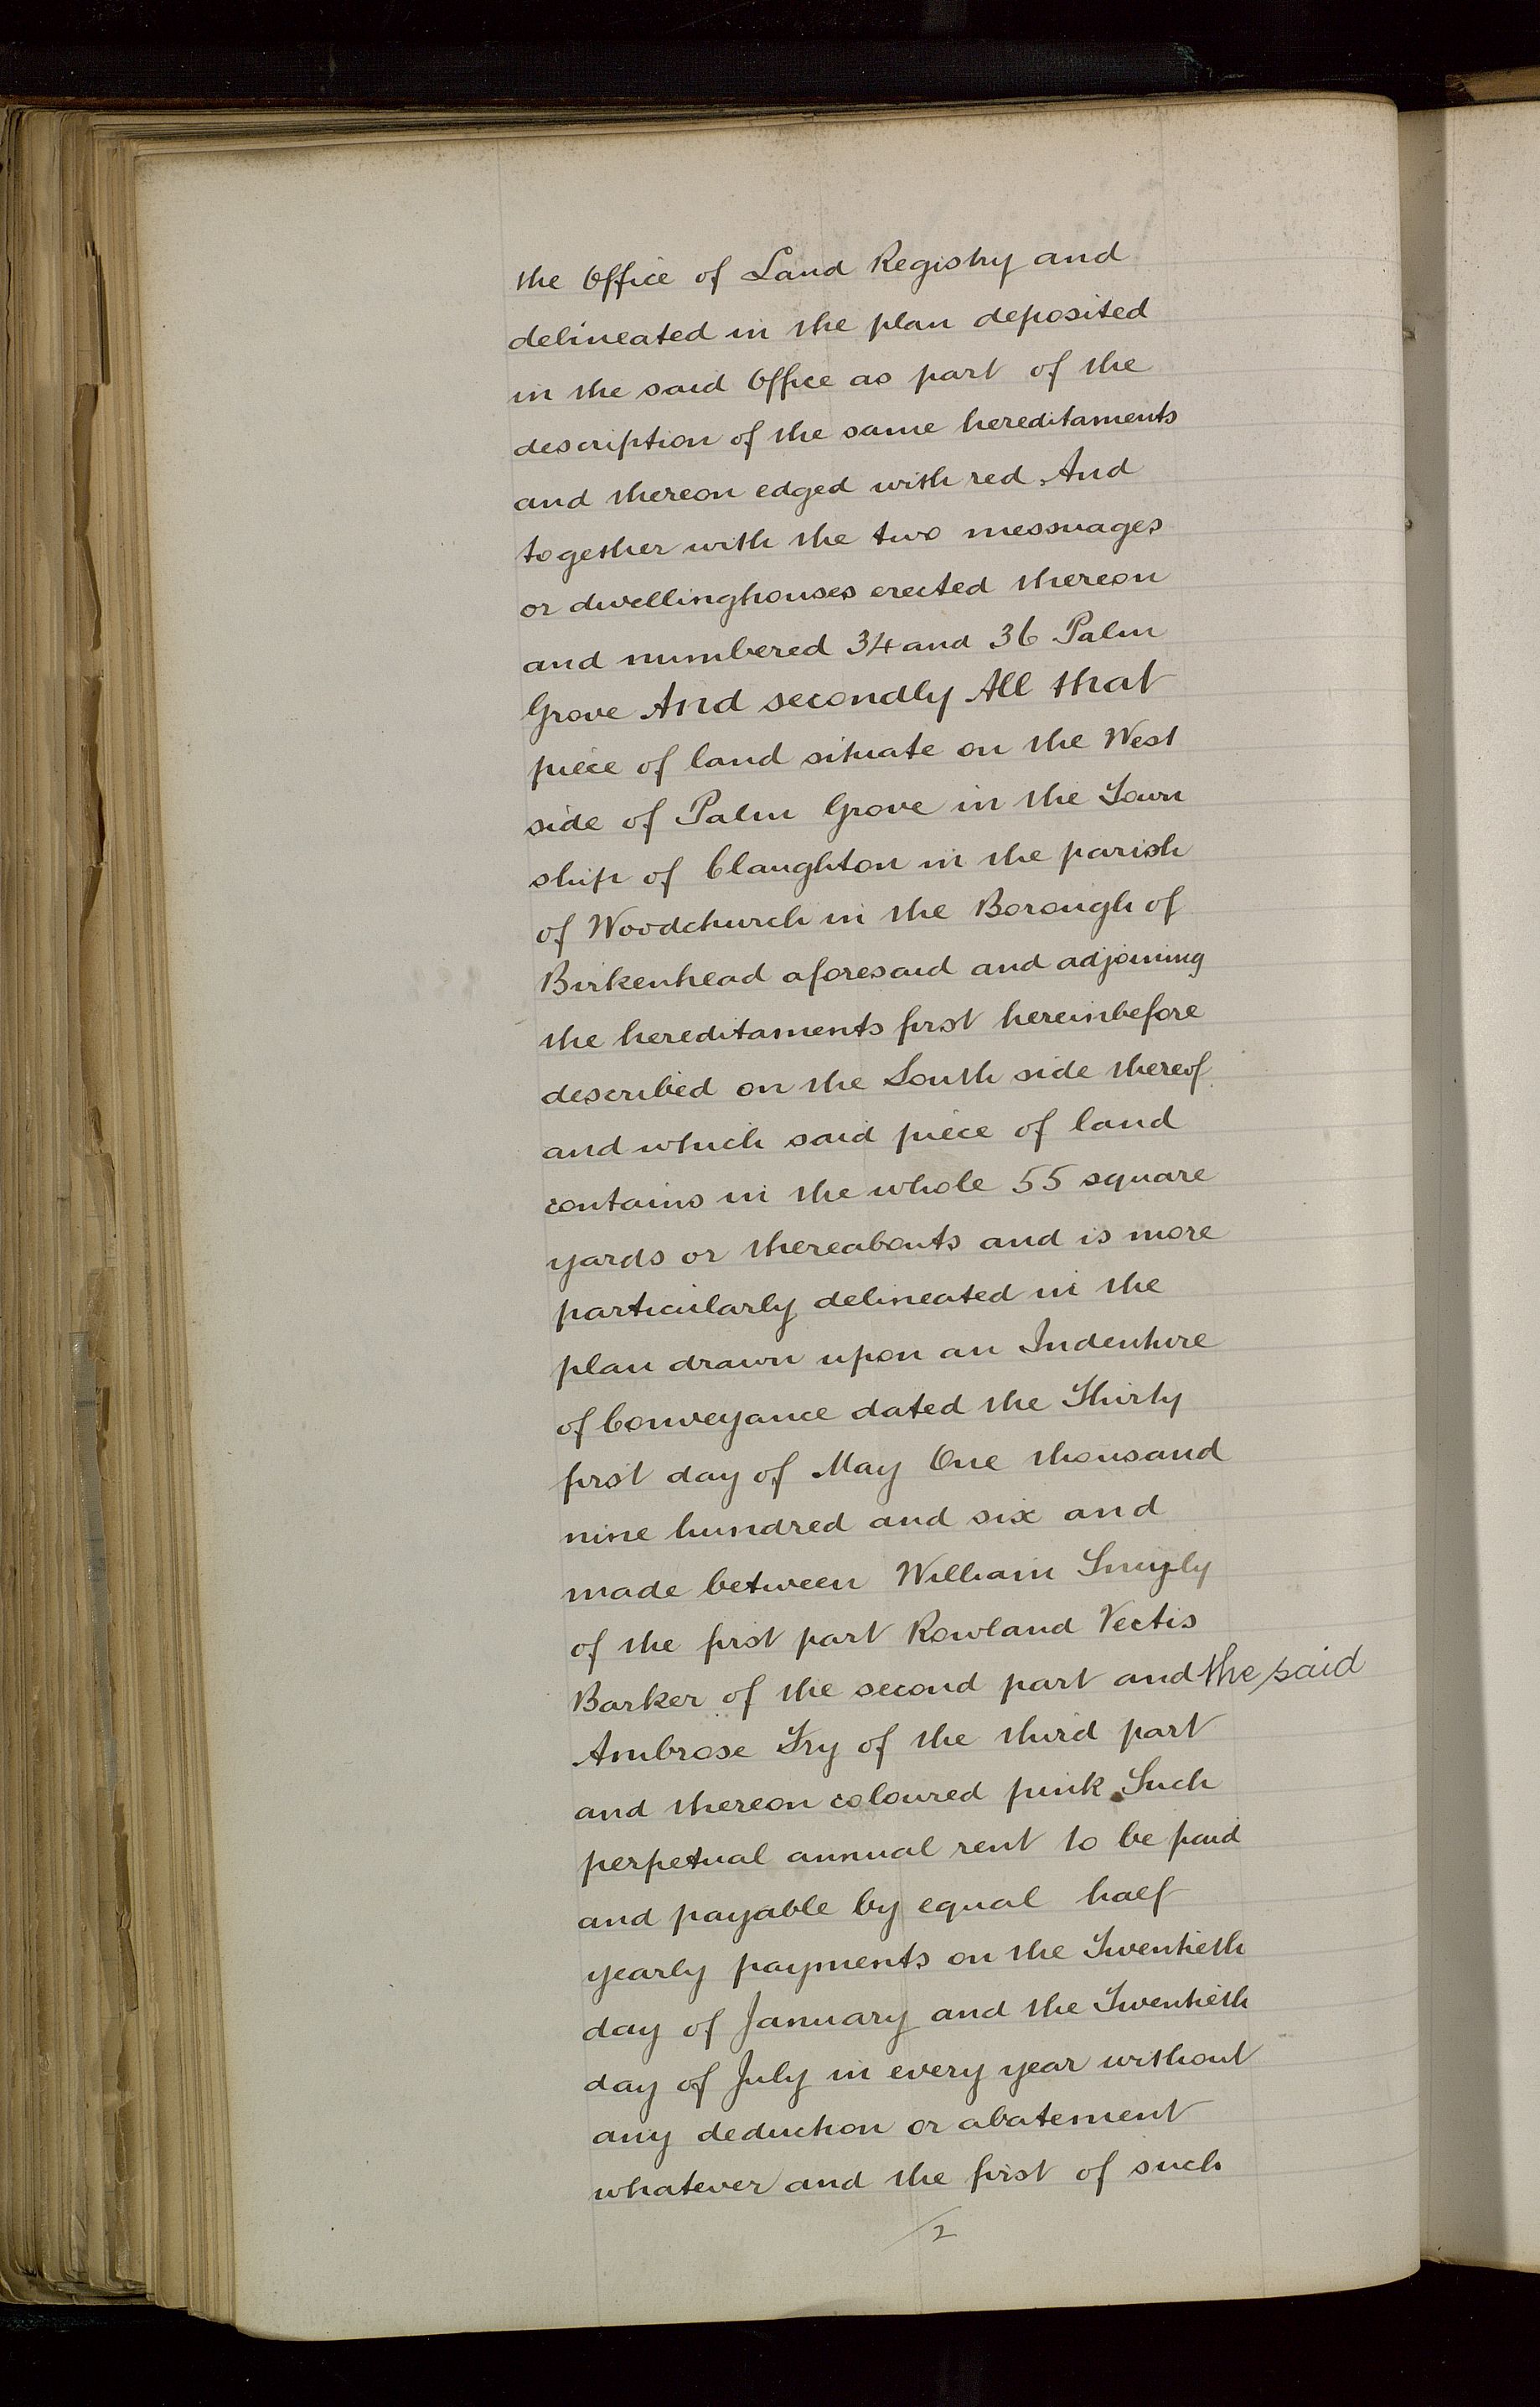 the Office of Land Registry and
delineated in the plan deposited
in the said Office as part of the
description of the same hereditaments
and thereon edged with red And
together with the two messuages
or dwellinghouses erected thereon
and numbered 34 and 36 Palm
Grove And secondly All that
piece of land situate on the West
side of Palm Grove in the Town
ship of Claughton in the parish
of Woodchurch in the Borough of
Birkenhead aforesaid and adjoining
the hereditaments first hereinbefore
described on the South side thereof
and which said piece of land
contains in the whole 55 square
yards or thereabouts and is more
particularly delineated in the
plan drawn upon an Indenture
of Conveyance dated the Thirty
first day of May One thousand
nine hundred and six and
made between William
of the first part Rowland Vectis
Barker of the second part and the said
Ambrose Fry of the third part
and thereon coloured pink Such
perpetual annual rent to be paid
and payable by equal half
yearly payments on the Twentieth
day of January and the Twentieth
day of July in every year without
any deduction or abatement
whatever and the first of such
/2